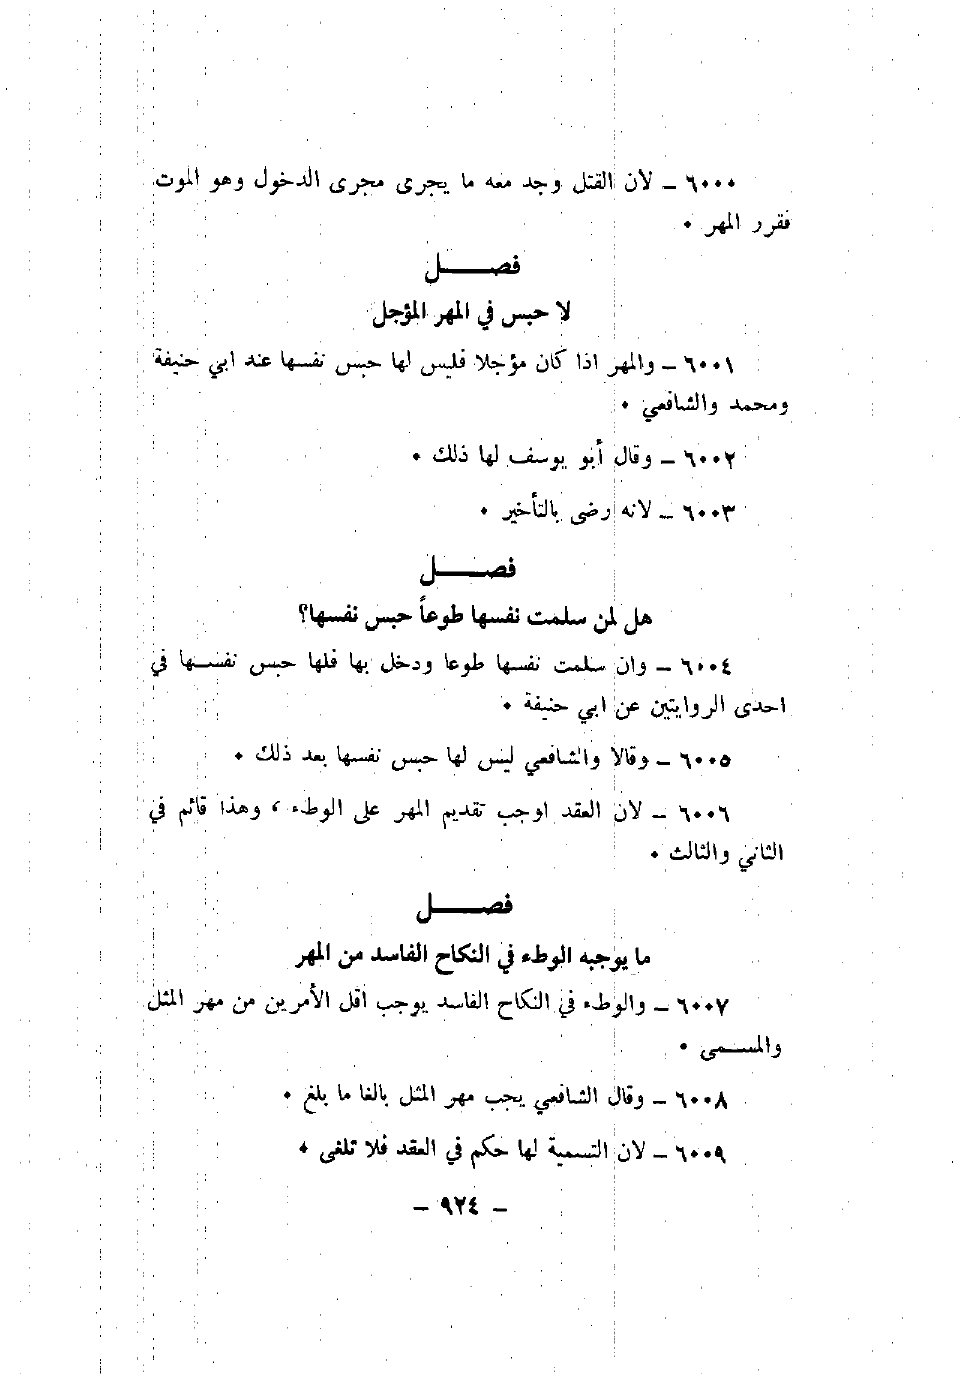 ٦٠٠٠ ـ لان القتل وجد معه ما يجرى مجرى الدخول وهو الموت
فقرر المهر ٠
فصـــــل
لا حبس في المهر المؤجل
٦٠٠١ ـ والمهر اذا كان مؤجلا فليس لها حبس نفسها عند ابي حنيفة
ومحمد والشافعي ٠
٦٠٠٢ ـ وقال أبو يوسف لها ذلك ٠
٦٠٠٣ ـ لانه رضى بالتأخير ٠
فصـــــل
هل لمن سلمت نفسها طوعاً حبس نفسها؟
٦٠٠٤ ـ وان سلمت نفسها طوعا ودخل بها فلها حبس نفســها في
احدى الروايتين عن ابي حنيفة ٠
٦٠٠٥ ـ وقالا والشافعي ليس لها حبس نفسها بعد ذلك ٠
٦٠٠٦ ـ لان العقد اوجب تقديم المهر على الوطء ، وهذا قائم في
الثاني والثالث ٠
فصـــــل
ما يوجبه الوطء في النكاح الفاسد من المهر
٦٠٠٧ ـ والوطء في النكاح الفاسد يوجب اقل الأمرين من مهر المثل
والمســـمى ٠
٦٠٠٨ ـ وقال الشافعي يجب مهر المثل بالغا ما بلغ ٠
٦٠٠٩ ـ لان التسمية لها حكم في العقد فلا تلغى ٠
ـ ٩٢٤ ـ